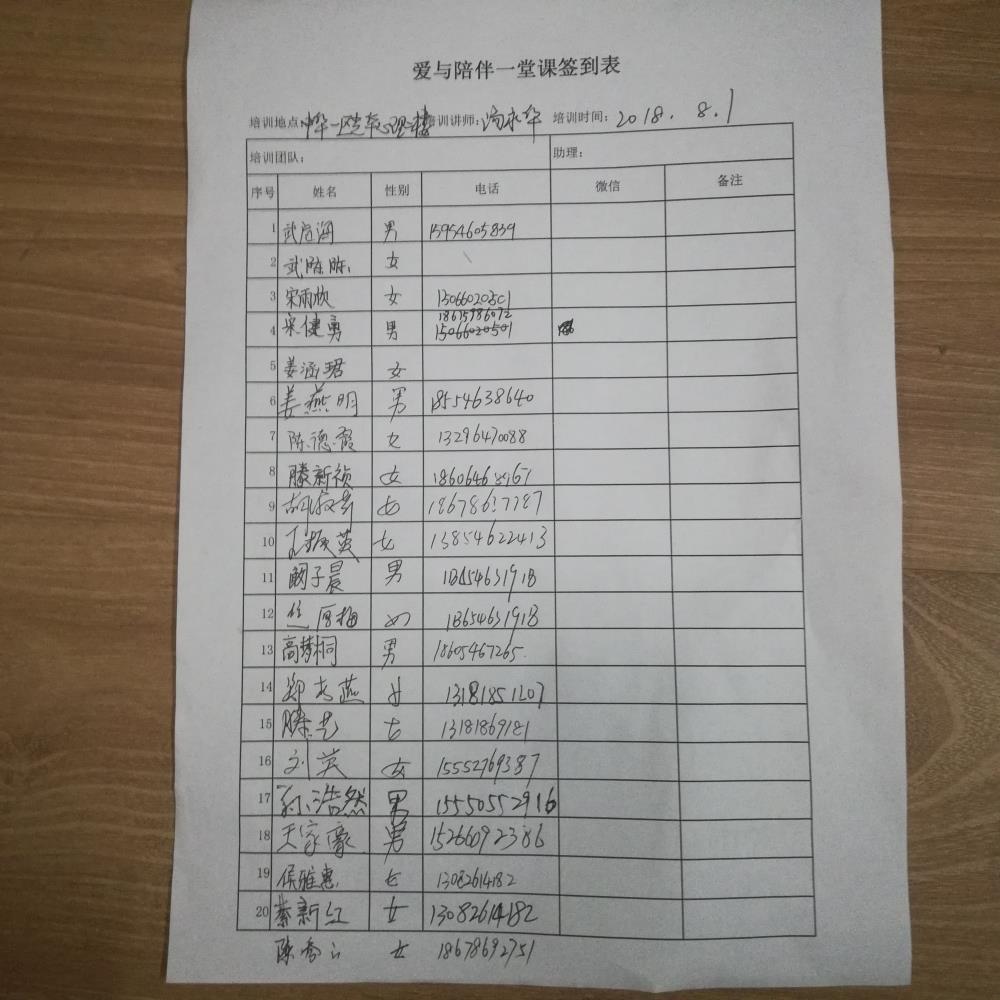 爱与陪伴一堂课签到表
培训地点: 培训讲师: 培训时间: 2018. 8. 1
培训团队: 助理:
序号 姓名 性别 电话 微信 备注
1 男 15954605839
2 武陈陈 女
3 宋雨 女 15066020501
18615986092
4 宋健勇 男 15066020501
5 姜涵珺 女
6 姜燕明 男 18554638640
7 陈德霞 女 13296470088
8 滕新祯 女
9 胡 女
10 王振英 女 13854622413
11 阚子晨 男
12 女
13 高梦桐 男 18605467265
14 郑 燕 女 13181851207
15 滕艺 女 13181869181
16 刘英 女 15552769387
17 孙浩然 男 15550552916
18 王家豪 男 15266092386
19 侯雅惠 女 13082614182
20 綦新红 女 13082614182
陈 女 18678692751